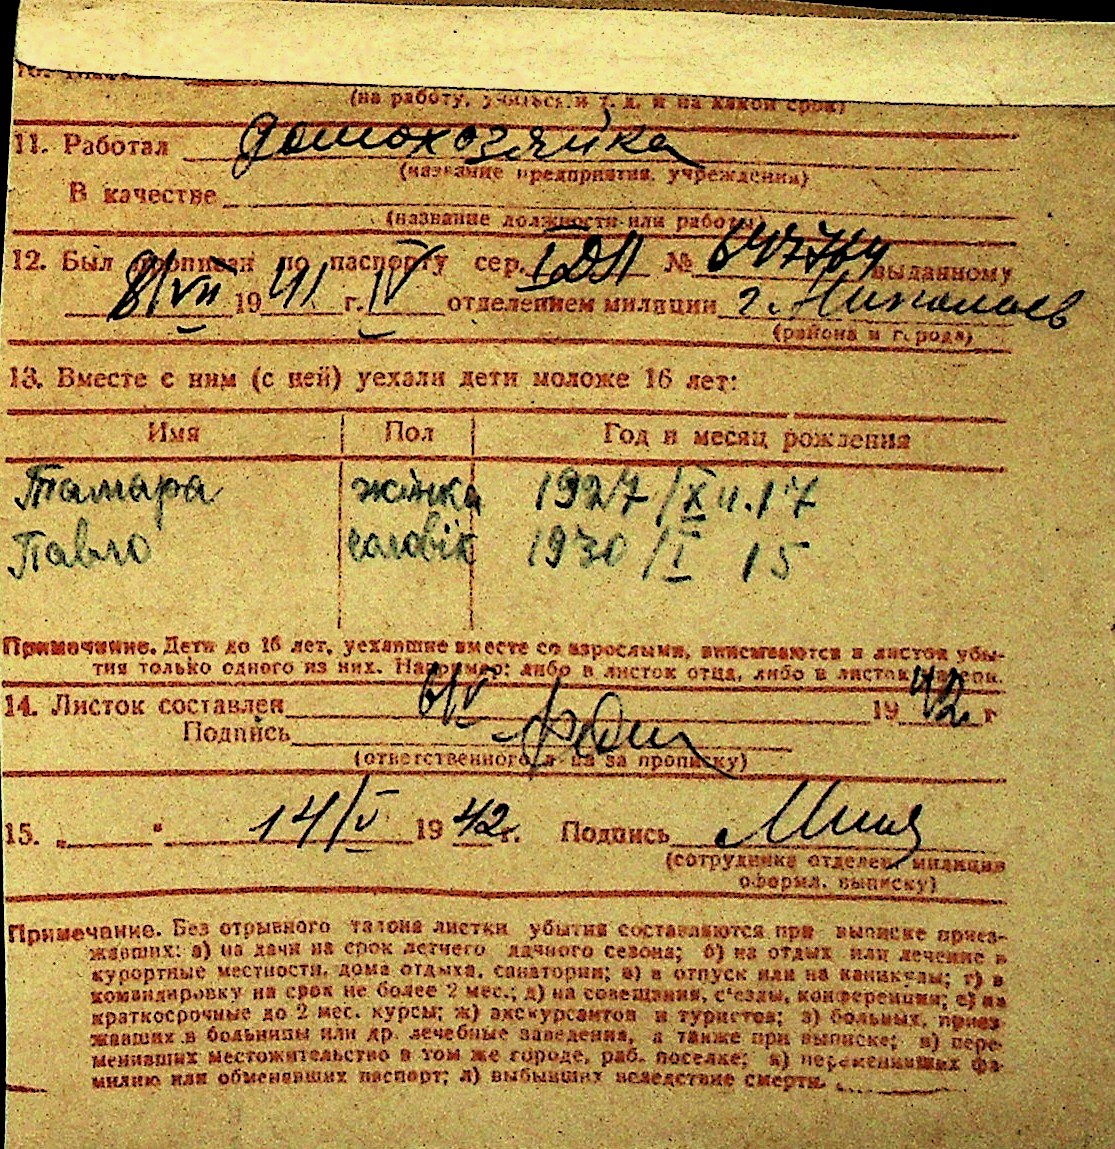 (на работу, учиться и т. д. и на какой срок)
11. Работал домохозяйка
(название предприятия, учреждения)
В качестве
(название должности или работы)
12. Был прописан по паспорту сер. № 647764 выданному
8/VII 1941 г. IV отделением милиции г. Николаев
(района и города)
13. Вместе с ним (с ней) уехали дети моложе 16 лет:
Имя Пол Год и месяц рождения
Тамара жінка 1927 /X 17
Павло чоловік 1930 /I 15
Примечание. Дети до 16 лет, уехавшие вместе со взрослыми, вписываются в листок убы-
тия только одного из них. Например: либо в листок отца, либо в листок матери.
14. Листок составлен 6/V 1942 г
Подпись
(ответственного л-ца за прописку)
15. „ " 14/V 1942 г. Подпись
(сотрудника отделен. милиции
оформл. выписку)
Примечание. Без отрывного талона листки убытия составляются при выписке приез-
жавших: а) на дачи на срок летнего дачного сезона; б) на отдых или лечение в
курортные местности, дома отдыха, санатории; в) в отпуск или на каникулы; г) в
командировку на срок не более 2 мес.; д) на совещания, с'езды, конференции; е) на
краткосрочные до 2 мес. курсы; ж) экскурсантов и туристов; з) больных, приез
жавших в больницы или др. лечебные заведения, а также при выписке; и) пере-
менивших местожительство в том же городе, раб. поселке; к) переменивших фа-
милию или обменявших паспорт; л) выбывших вследствие смерти.